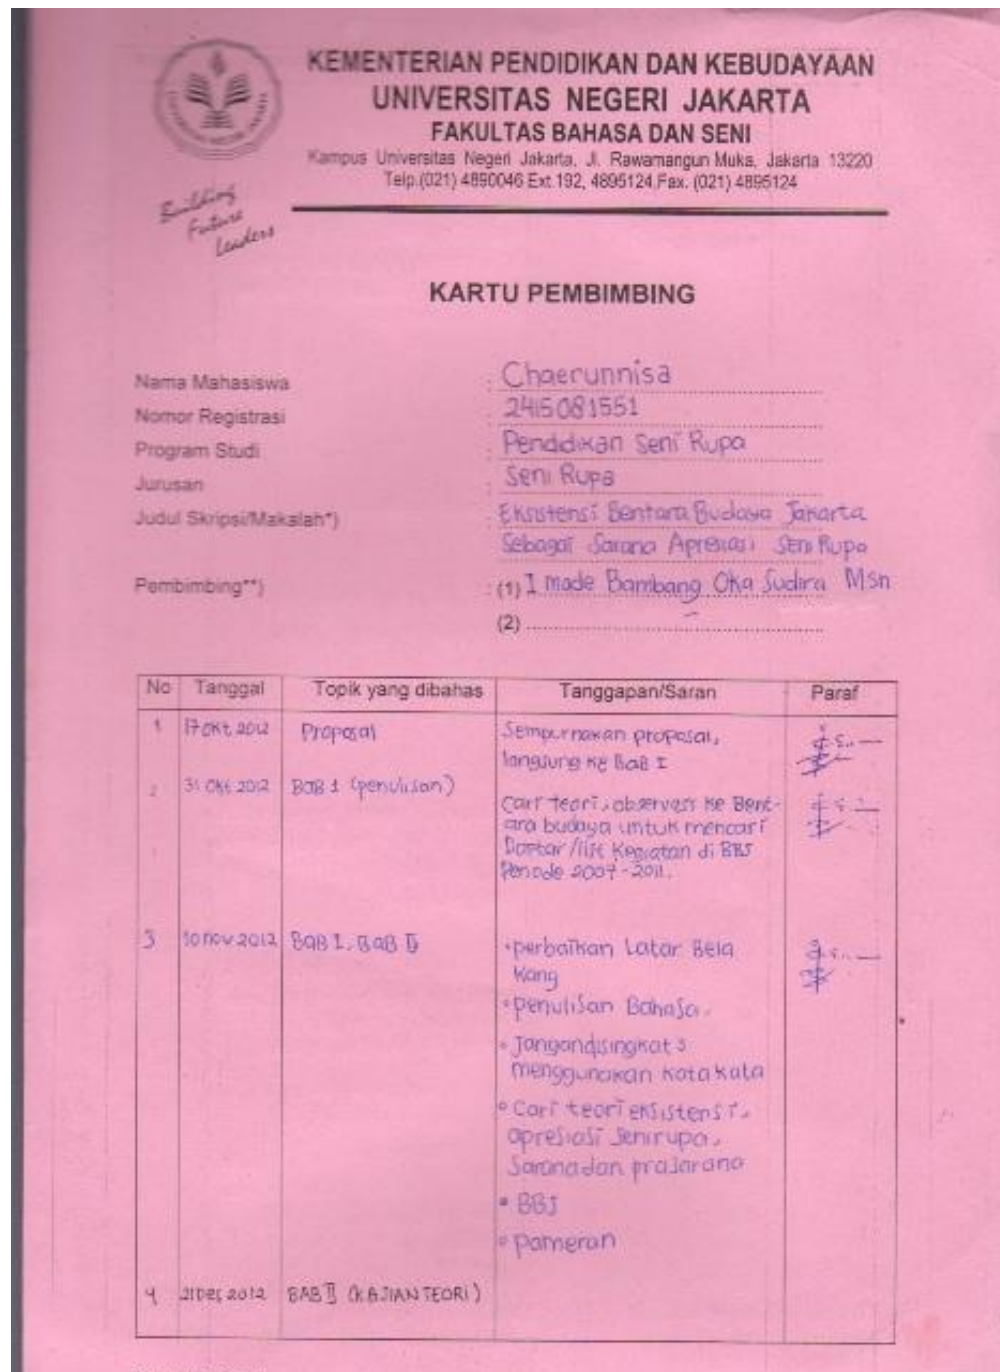 KEMENTERIAN PENDIDIKAN DAN KEBUDAYAAN
UNIVERSITAS NEGERI JAKARTA
FAKULTAS BAHASA DAN SENI
Kampus Universitas Negeri Jakarta, Jl. Rawamangun Muka, Jakarta 13220
Telp.(021) 4890046 Ext.192, 4895124,Fax. (021) 4895124
Building
Future
Leaders
KARTU PEMBIMBING
Nama Mahasiswa : Chaerunnisa
Nomor Registrasi : 2415081551
Program Studi : Pendidikan Seni Rupa
Jurusan : Seni Rupa
Judul Skripsi/Makalah*) : Eksistensi Bentara Budaya Jakarta
Sebagai Sarana Apresiasi Seni Rupa
Pembimbing**) : (1) I made Bambang Oka Sudira Msn
(2)
No Tanggal Topik yang dibahas Tanggapan/Saran Paraf
1 17 Okt 2012 Proposal Sempurnakan proposal,
langsung ke Bab I
2 31 Okt 2012 BAB I (penulisan)
Cari teori, observasi ke Bent-
ara budaya untuk mencari
Daftar /list Kegiatan di BBJ
Periode 2007-2011.
3 10 Nov 2012 BAB I, BAB II • perbaikan Latar Bela
kang
• penulisan Bahasa.
• Jangan disingkat s
menggunakan kata kata
• Cari teori eksistensi,
apresiasi Senirupa,
Sarana dan prasarana
• BBJ
• Pameran
4 21 Des 2012 BAB II (KAJIAN TEORI)